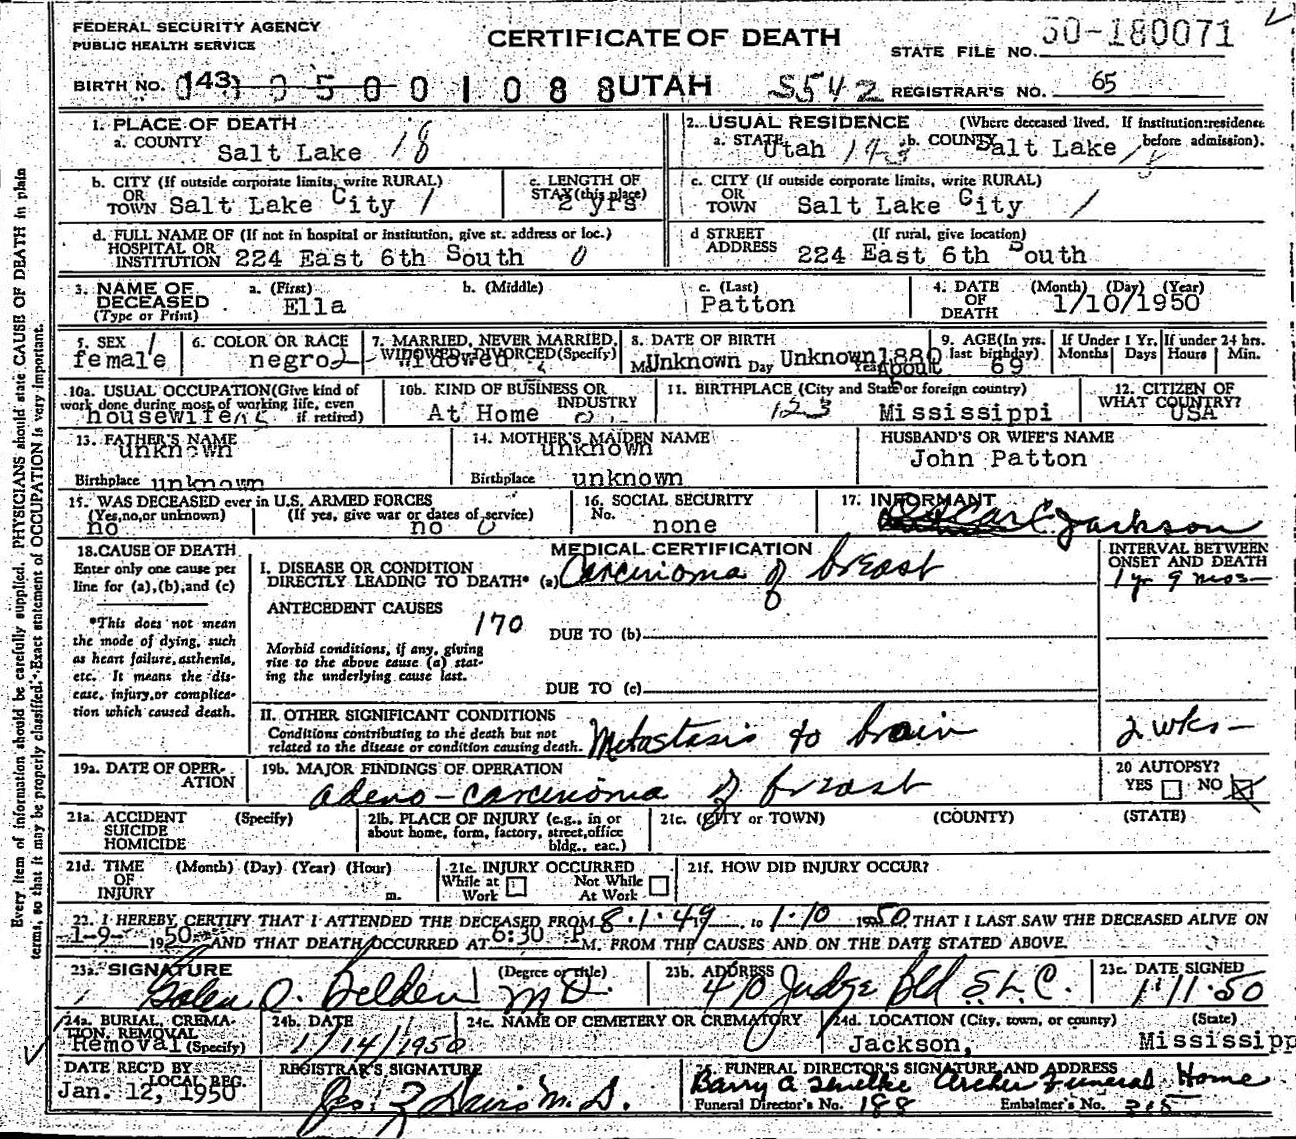 FEDERAL SECURITY AGENCY
PUBLIC HEALTH SERVICE
CERTIFICATE OF DEATH
STATE FILE NO. 50-180071
BIRTH NO. 143 0 5 0 0 1 0 8 8 UTAH S542 REGISTRAR'S NO. 65
1. PLACE OF DEATH
a. COUNTY Salt Lake 18
2. USUAL RESIDENCE (Where deceased lived. If institution: residence before admission).
a. STATE Utah b. COUNTY Salt Lake
b. CITY (If outside corporate limits, write RURAL) OR TOWN Salt Lake City 1
c. LENGTH OF STAY (this place) 2 yrs
c. CITY (If outside corporate limits, write RURAL) OR TOWN Salt Lake City /
d. FULL NAME OF (If not in hospital or institution, give st. address or loc.) HOSPITAL OR INSTITUTION 224 East 6th South 0
d STREET ADDRESS (If rural, give location) 224 East 6th South
3. NAME OF DECEASED (Type or Print)
a. (First) Ella
b. (Middle)
c. (Last) Patton
4. DATE OF DEATH (Month) (Day) (Year) 1/10/1950
5. SEX female
6. COLOR OR RACE negro 2
7. MARRIED, NEVER MARRIED, WIDOWED, DIVORCED (Specify) widowed
8. DATE OF BIRTH Mo. Unknown Day Unknown Year 1880 About
9. AGE (In yrs. last birthday) 69
If Under 1 Yr. Months Days
If under 24 hrs. Hours Min.
10a. USUAL OCCUPATION (Give kind of work done during most of working life, even if retired) housewife
10b. KIND OF BUSINESS OR INDUSTRY At Home 0
11. BIRTHPLACE (City and State or foreign country) 123 Mississippi
12. CITIZEN OF WHAT COUNTRY? USA
13. FATHER'S NAME unknown
Birthplace unknown
14. MOTHER'S MAIDEN NAME unknown
Birthplace unknown
HUSBAND'S OR WIFE'S NAME
John Patton
15. WAS DECEASED ever in U.S. ARMED FORCES
(Yes, no, or unknown) no
(If yes, give war or dates of service) no 0
16. SOCIAL SECURITY No. none
17. INFORMANT Oscar C. Jackson
18. CAUSE OF DEATH
Enter only one cause per line for (a), (b), and (c)
*This does not mean the mode of dying, such as heart failure, asthenia, etc. It means the disease, injury, or complication which caused death.
MEDICAL CERTIFICATION
I. DISEASE OR CONDITION DIRECTLY LEADING TO DEATH* (a) Carcinoma of breast
INTERVAL BETWEEN ONSET AND DEATH
1 yr 9 mos —
ANTECEDENT CAUSES
170
Morbid conditions, if any, giving rise to the above cause (a) stating the underlying cause last.
DUE TO (b)
DUE TO (c)
II. OTHER SIGNIFICANT CONDITIONS
Conditions contributing to the death but not related to the disease or condition causing death.
Metastasis to brain
2 wks —
19a. DATE OF OPERATION
19b. MAJOR FINDINGS OF OPERATION
adeno-carcinoma of breast
20 AUTOPSY?
YES NO
21a. ACCIDENT SUICIDE HOMICIDE (Specify)
21b. PLACE OF INJURY (e.g., in or about home, form, factory, street, office bldg., eac.)
21c. (CITY or TOWN) (COUNTY) (STATE)
21d. TIME OF INJURY (Month) (Day) (Year) (Hour) m.
21e. INJURY OCCURRED
While at Work Not While At Work
21f. HOW DID INJURY OCCUR?
22. I HEREBY CERTIFY THAT I ATTENDED THE DECEASED FROM 8·1·49, to 1·10 1950 THAT I LAST SAW THE DECEASED ALIVE ON
1-9- 1950 AND THAT DEATH OCCURRED AT 6:30 P M. FROM THE CAUSES AND ON THE DATE STATED ABOVE.
23a. SIGNATURE (Degree or title)
Galen O. Belden M.D.
23b. ADDRESS
410 Judge Bld S.L.C.
23c. DATE SIGNED
1·11·50
24a. BURIAL, CREMATION, REMOVAL (Specify) Removal
24b. DATE 1/14/1950
24c. NAME OF CEMETERY OR CREMATORY
24d. LOCATION (City, town, or county) (State)
Jackson, Mississipp
DATE REC'D BY LOCAL REG.
Jan. 12, 1950
REGISTRAR'S SIGNATURE
M.D.
25. FUNERAL DIRECTOR'S SIGNATURE AND ADDRESS
Barry A. Archer Funeral Home
Funeral Director's No. 188 Embalmer's No. 315
Every item of information should be carefully supplied. PHYSICIANS should state CAUSE OF DEATH in plain
terms, so that it may be properly classified. Exact statement of OCCUPATION is very important.